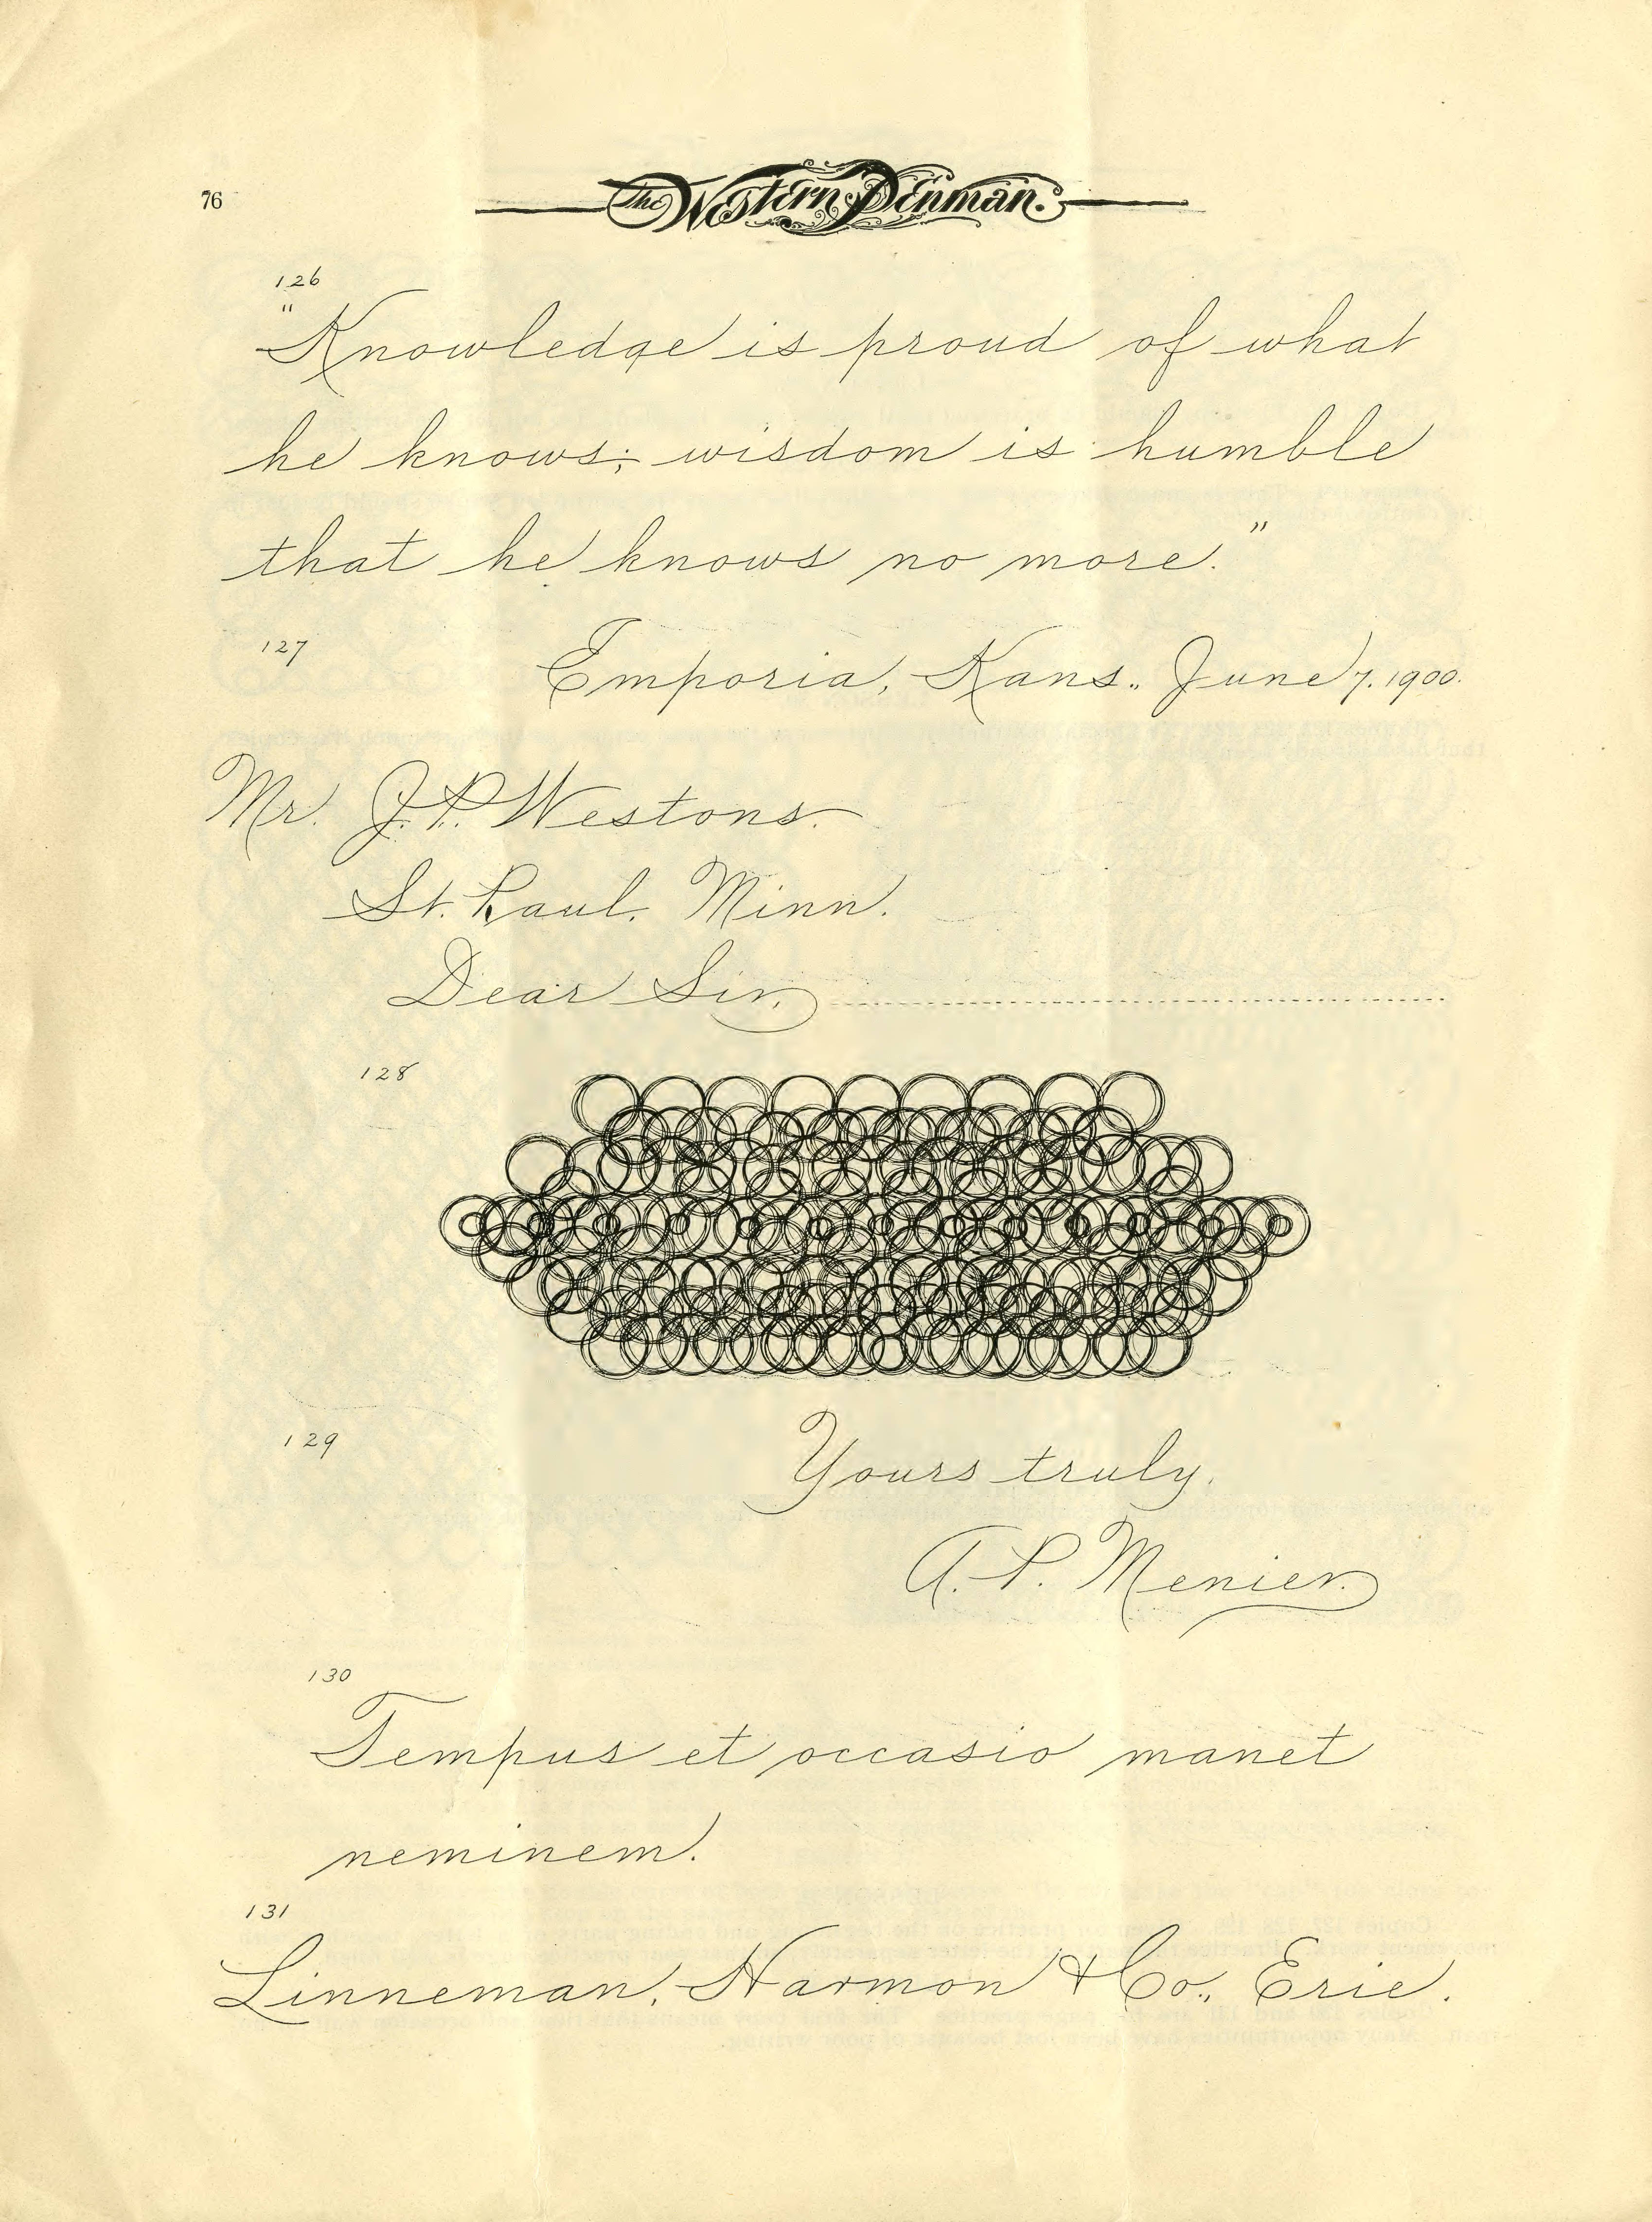 76
The Western Penman.
126
"Knowledge is proud of what
he knows; wisdom is humble
that he knows no more."
127
Emporia, Kans., June 7, 1900.
Mr. J. P. Westons.
St. Paul, Minn.
Dear Sir,
128
129
Yours truly,
A. P. Menier.
130
Tempus et occasio manet
neminem.
131
Linneman, Harmon & Co., Erie.